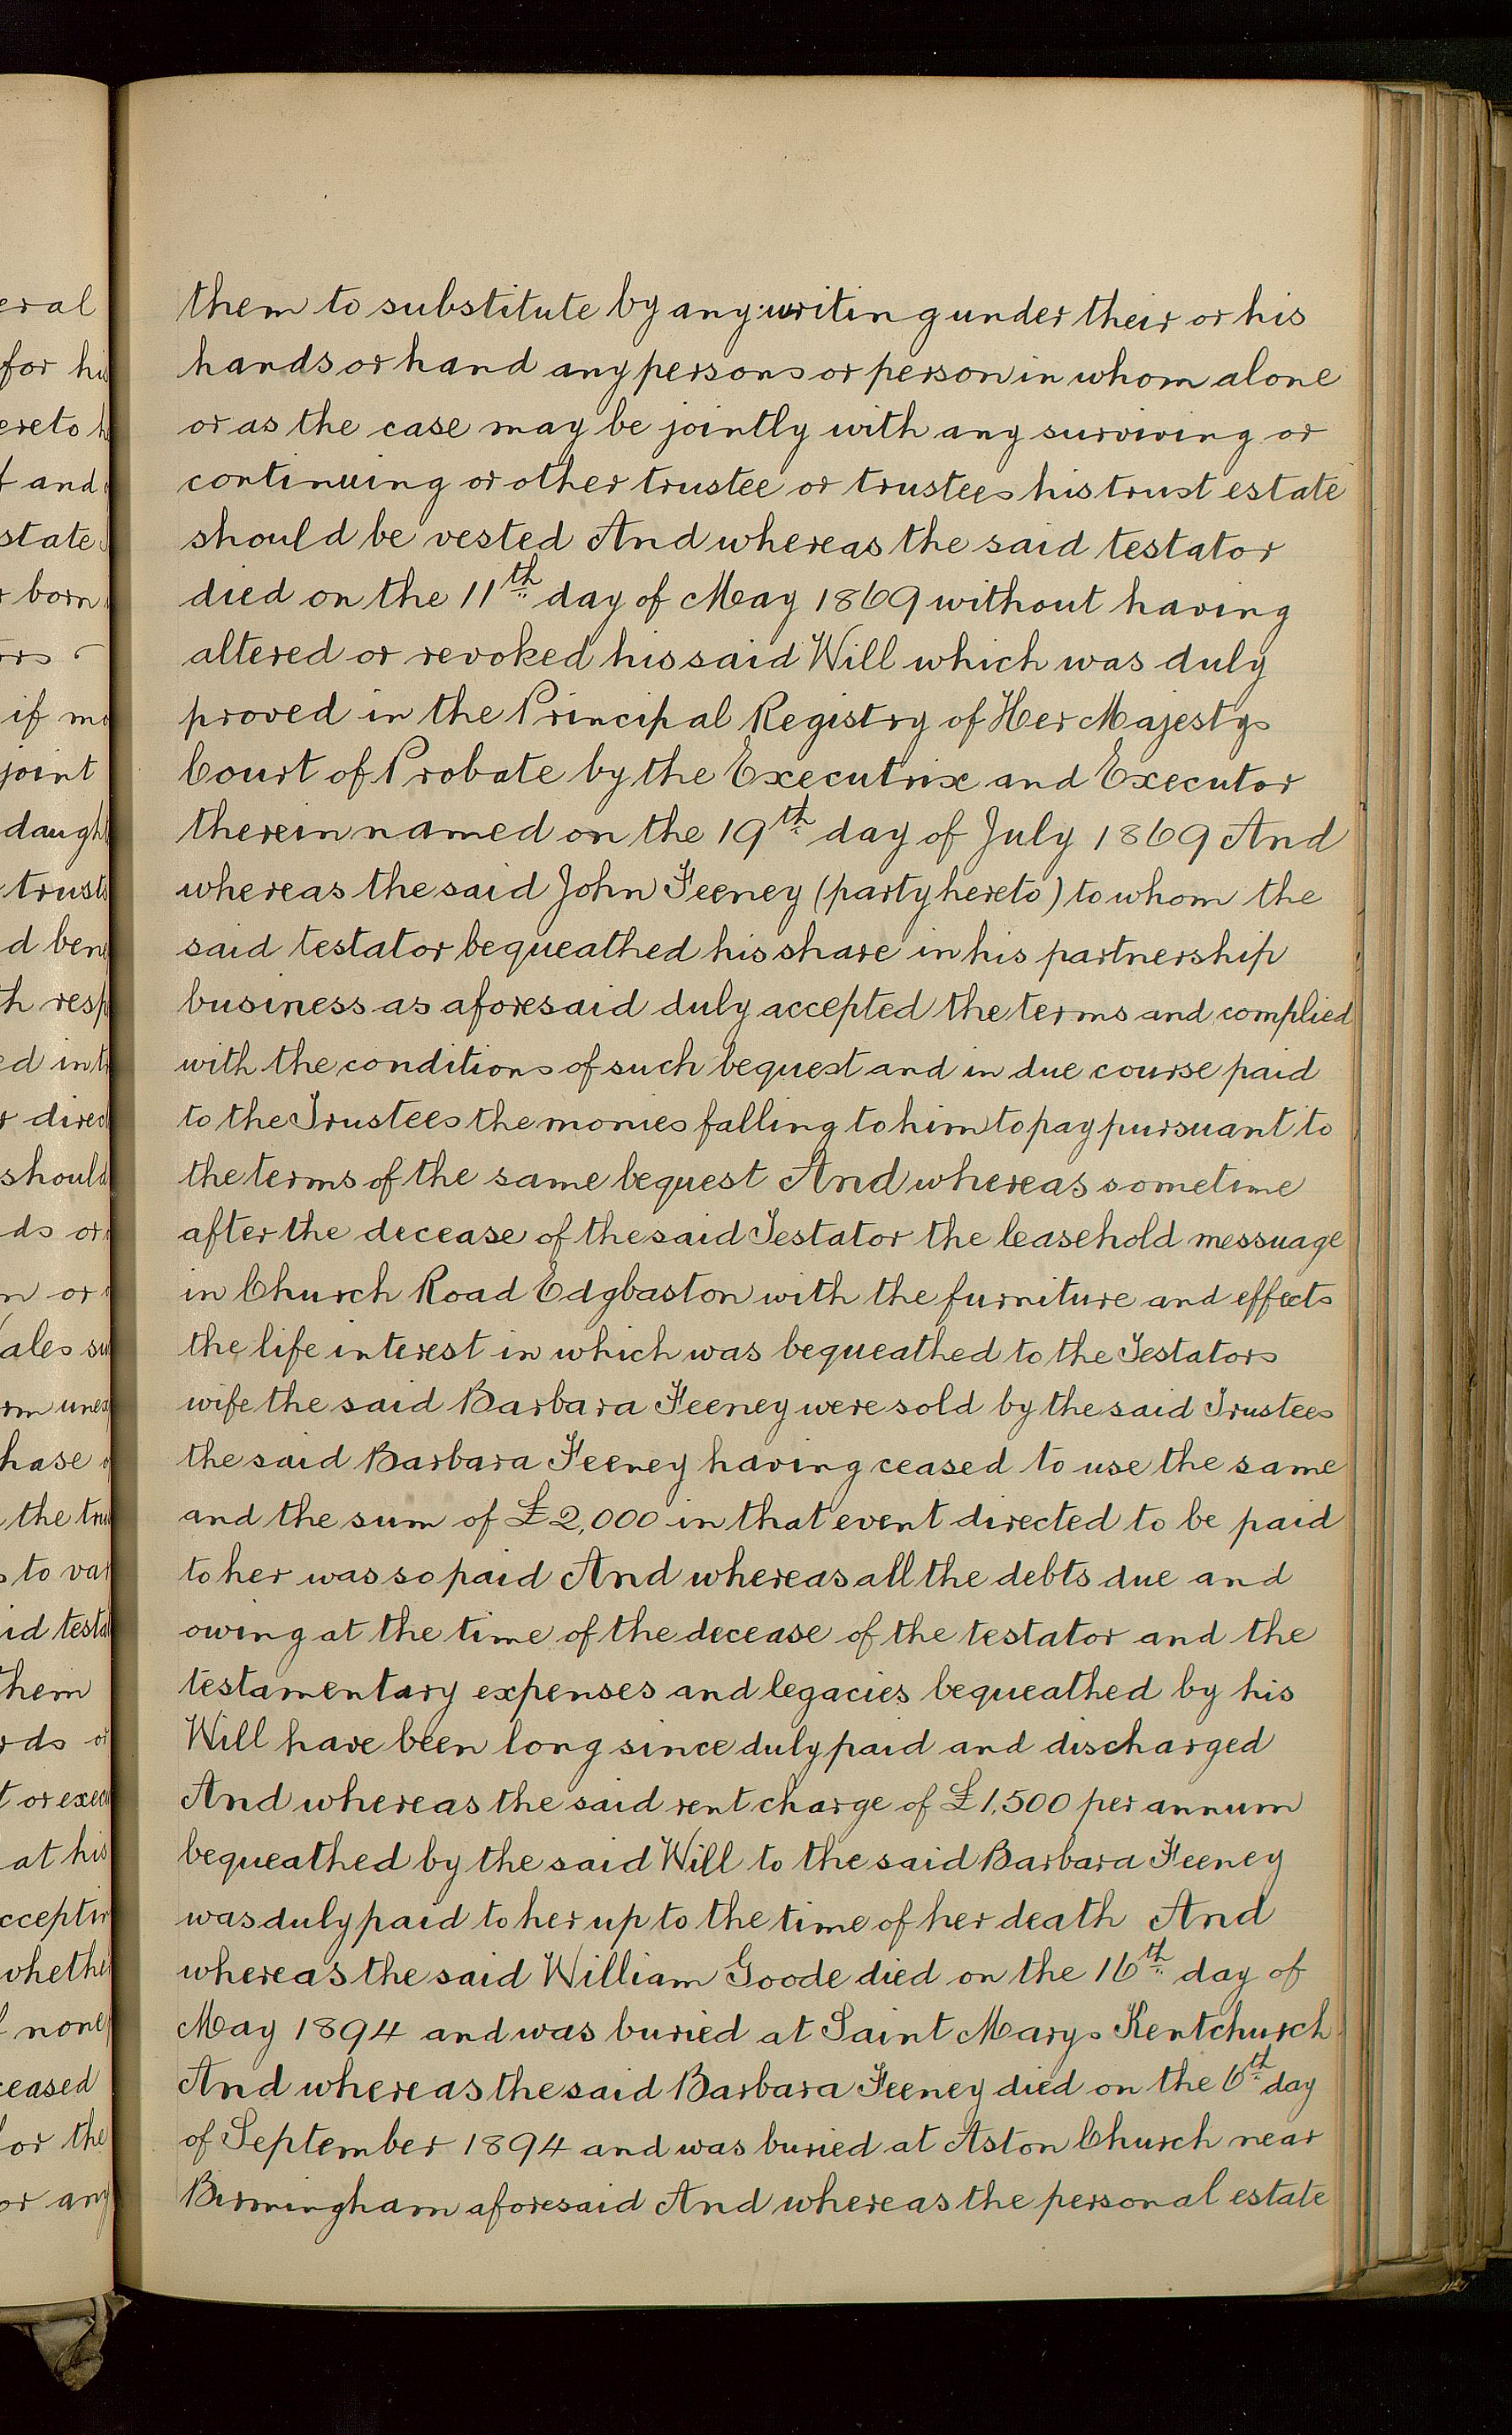 eral
for his
ereto h
f and
state
r born
ors
if mo
joint
daught
trusts
d ben
th resp
ed int
r direc
should
ds or
n or
ales su
rm unex
hase
the tru
s to var
id testa
them
rds or
t or exec
at his
cceptin
whethe
f none
ceased
or the
or any
them to substitute by any writing under their or his
hands or hand any persons or person in whom alone
or as the case may be jointly with any surviving or
continuing or other trustee or trustees his trust estate
should be vested And whereas the said testator
died on the 11th day of May 1869 without having
altered or revoked his said Will which was duly
proved in the Principal Registry of Her Majestys
Court of Probate by the Executrix and Executor
therein named on the 19th day of July 1869 And
whereas the said John Feeney (party hereto) to whom the
said testator bequeathed his share in his partnership
business as aforesaid duly accepted the terms and complied
with the conditions of such bequest and in due course paid
to the Trustees the monies falling to him to pay pursuant to
the terms of the same bequest And whereas sometime
after the decease of the said Testator the leasehold messuage
in Church Road Edgbaston with the furniture and effects
the life interest in which was bequeathed to the Testators
wife the said Barbara Feeney were sold by the said Trustees
the said Barbara Feeney having ceased to use the same
and the sum of £2,000 in that event directed to be paid
to her was so paid And whereas all the debts due and
owing at the time of the decease of the testator and the
testamentary expenses and legacies bequeathed by his
Will have been long since duly paid and discharged
And whereas the said rent charge of £1,500 per annum
bequeathed by the said Will to the said Barbara Feeney
was duly paid to her up to the time of her death And
whereas the said William Goode died on the 16th day of
May 1894 and was buried at Saint Marys Kentchurch
And whereas the said Barbara Feeney died on the 6th day
of September 1894 and was buried at Aston Church near
Birmingham aforesaid And whereas the personal estate